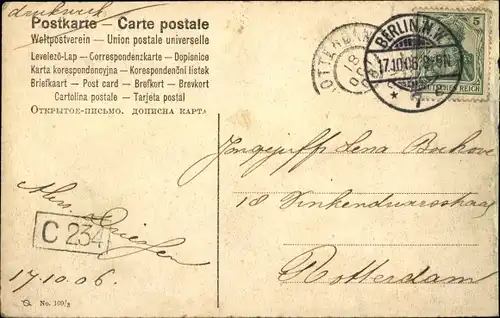 drukwerk
Postkarte — Carte postale
Weltpostverein — Union postale universelle
Levelező-Lap — Correspondenzkarte — Dopisnice
Karta korespondencyjna — Korespondenční lístek
Briefkaart — Post card — Brefkort — Brevkort
Cartolina postale — Tarjeta postal
Открытое-письмо. Дописна карта
ROTTERDAM
BERLIN N.W.
17.10.06. 8-9N.
5
DEUTSCHES REICH
Jongejuffr Lena
18
Rotterdam
C 234
17.10 06.
No. 160/2